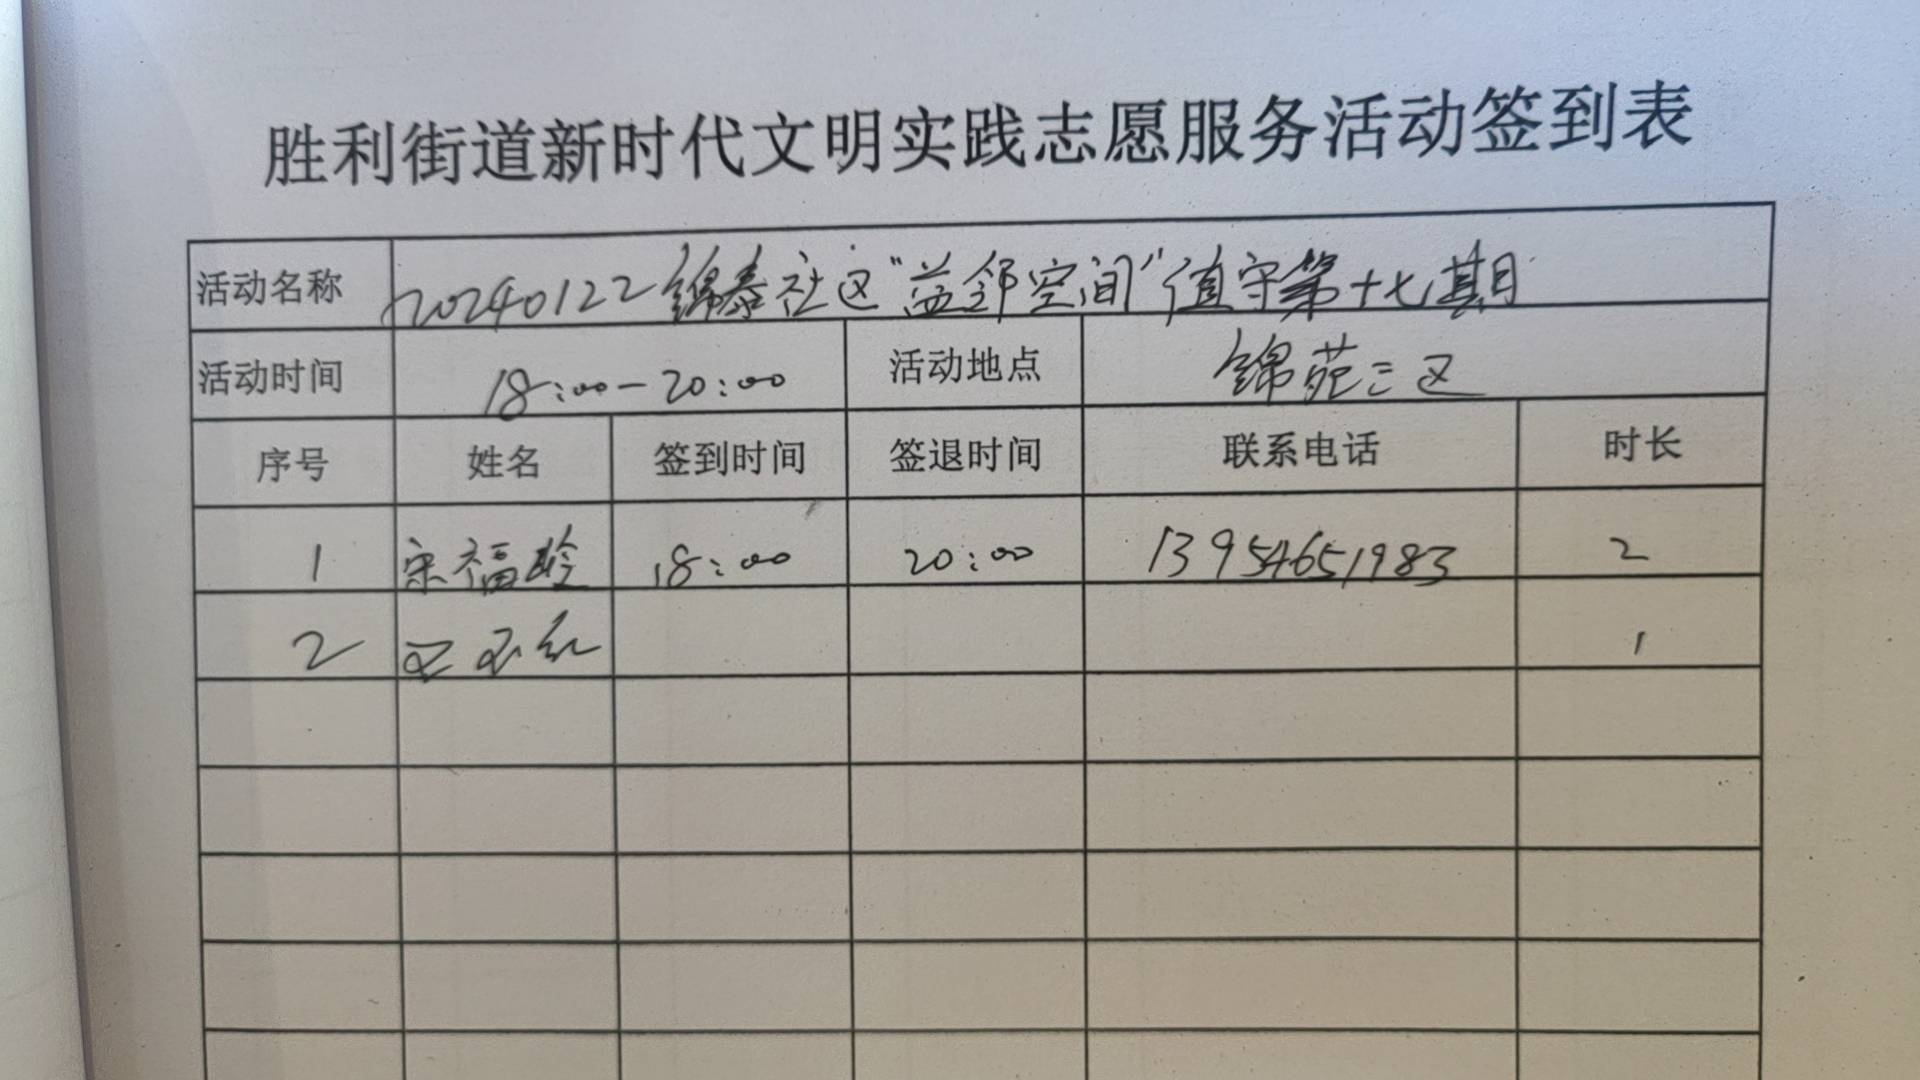 胜利街道新时代文明实践志愿服务活动签到表
活动名称 20240122锦泰社区“益邻空间”值守第十七期
活动时间 18:00-20:00 活动地点 锦苑三区
序号 姓名 签到时间 签退时间 联系电话 时长
1 宋福玲 18:00 20:00 13954651983 2
2 1